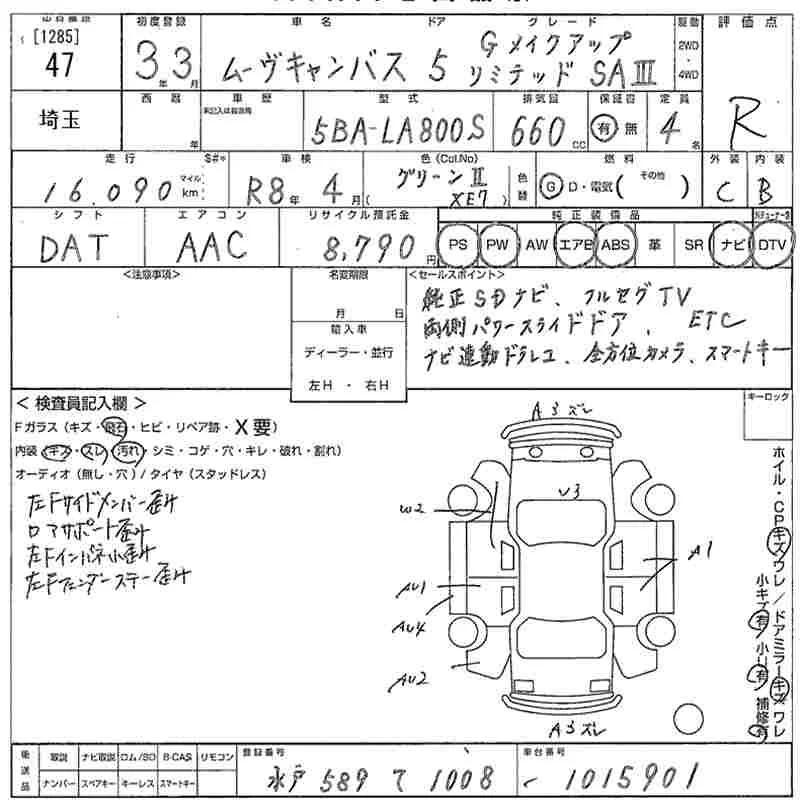 [1285]
47
初度登録 車名 ドア グレード 駆動 評価点
3年3月 ムーヴキャンバス 5 Gメイクアップ
リミテッド SAIII
2WD
・
4WD
埼玉
西暦 車歴 型式 排気量 保証書 定員
年 5BA-LA800S 660 CC 有 無 4名 R
走行 S#* 車検 色(Col.No) 燃料 外装 内装
16,090 マイル km R8年 4月 (グリーンII XE7) 色替 G D・電気( その他 ) C B
シフト エアコン リサイクル預託金 純正装備品
DAT AAC 8,790円 PS PW AW エアB ABS 革 SR ナビ DTV
<注意事項> 名変期限 <セールスポイント>
月 日
輸入車
ディーラー・並行
左H ・ 右H
純正SDナビ、フルセグTV
両側パワースライドドア、ETC
ナビ連動ドラレコ、全方位カメラ、スマートキー
キーロック
<検査員記入欄>
Fガラス(キズ・飛石・ヒビ・リペア跡・X要)
内装(キズ・スレ・汚れ・シミ・コゲ・穴・キレ・破れ・割れ)
オーディオ(無し・穴)/タイヤ(スタッドレス)
左Fサイドメンバー歪み
ロアサポート歪み
左Fインパネ小歪み
左Fフェンダーステー歪み
A3ズレ
V3
W2
A1
AU1
AU4
AU2
A3ズレ
ホイル・CPキズワレ/ドアミラーキズワレ
小キズ有 小凹有 補修有
後送品 取説 ナビ取説 ロム/SD B-CAS リモコン
ナンバー スペアキー キーレス スマートキー
登録番号 水戸 589 て 1008
車台番号 - 1015901